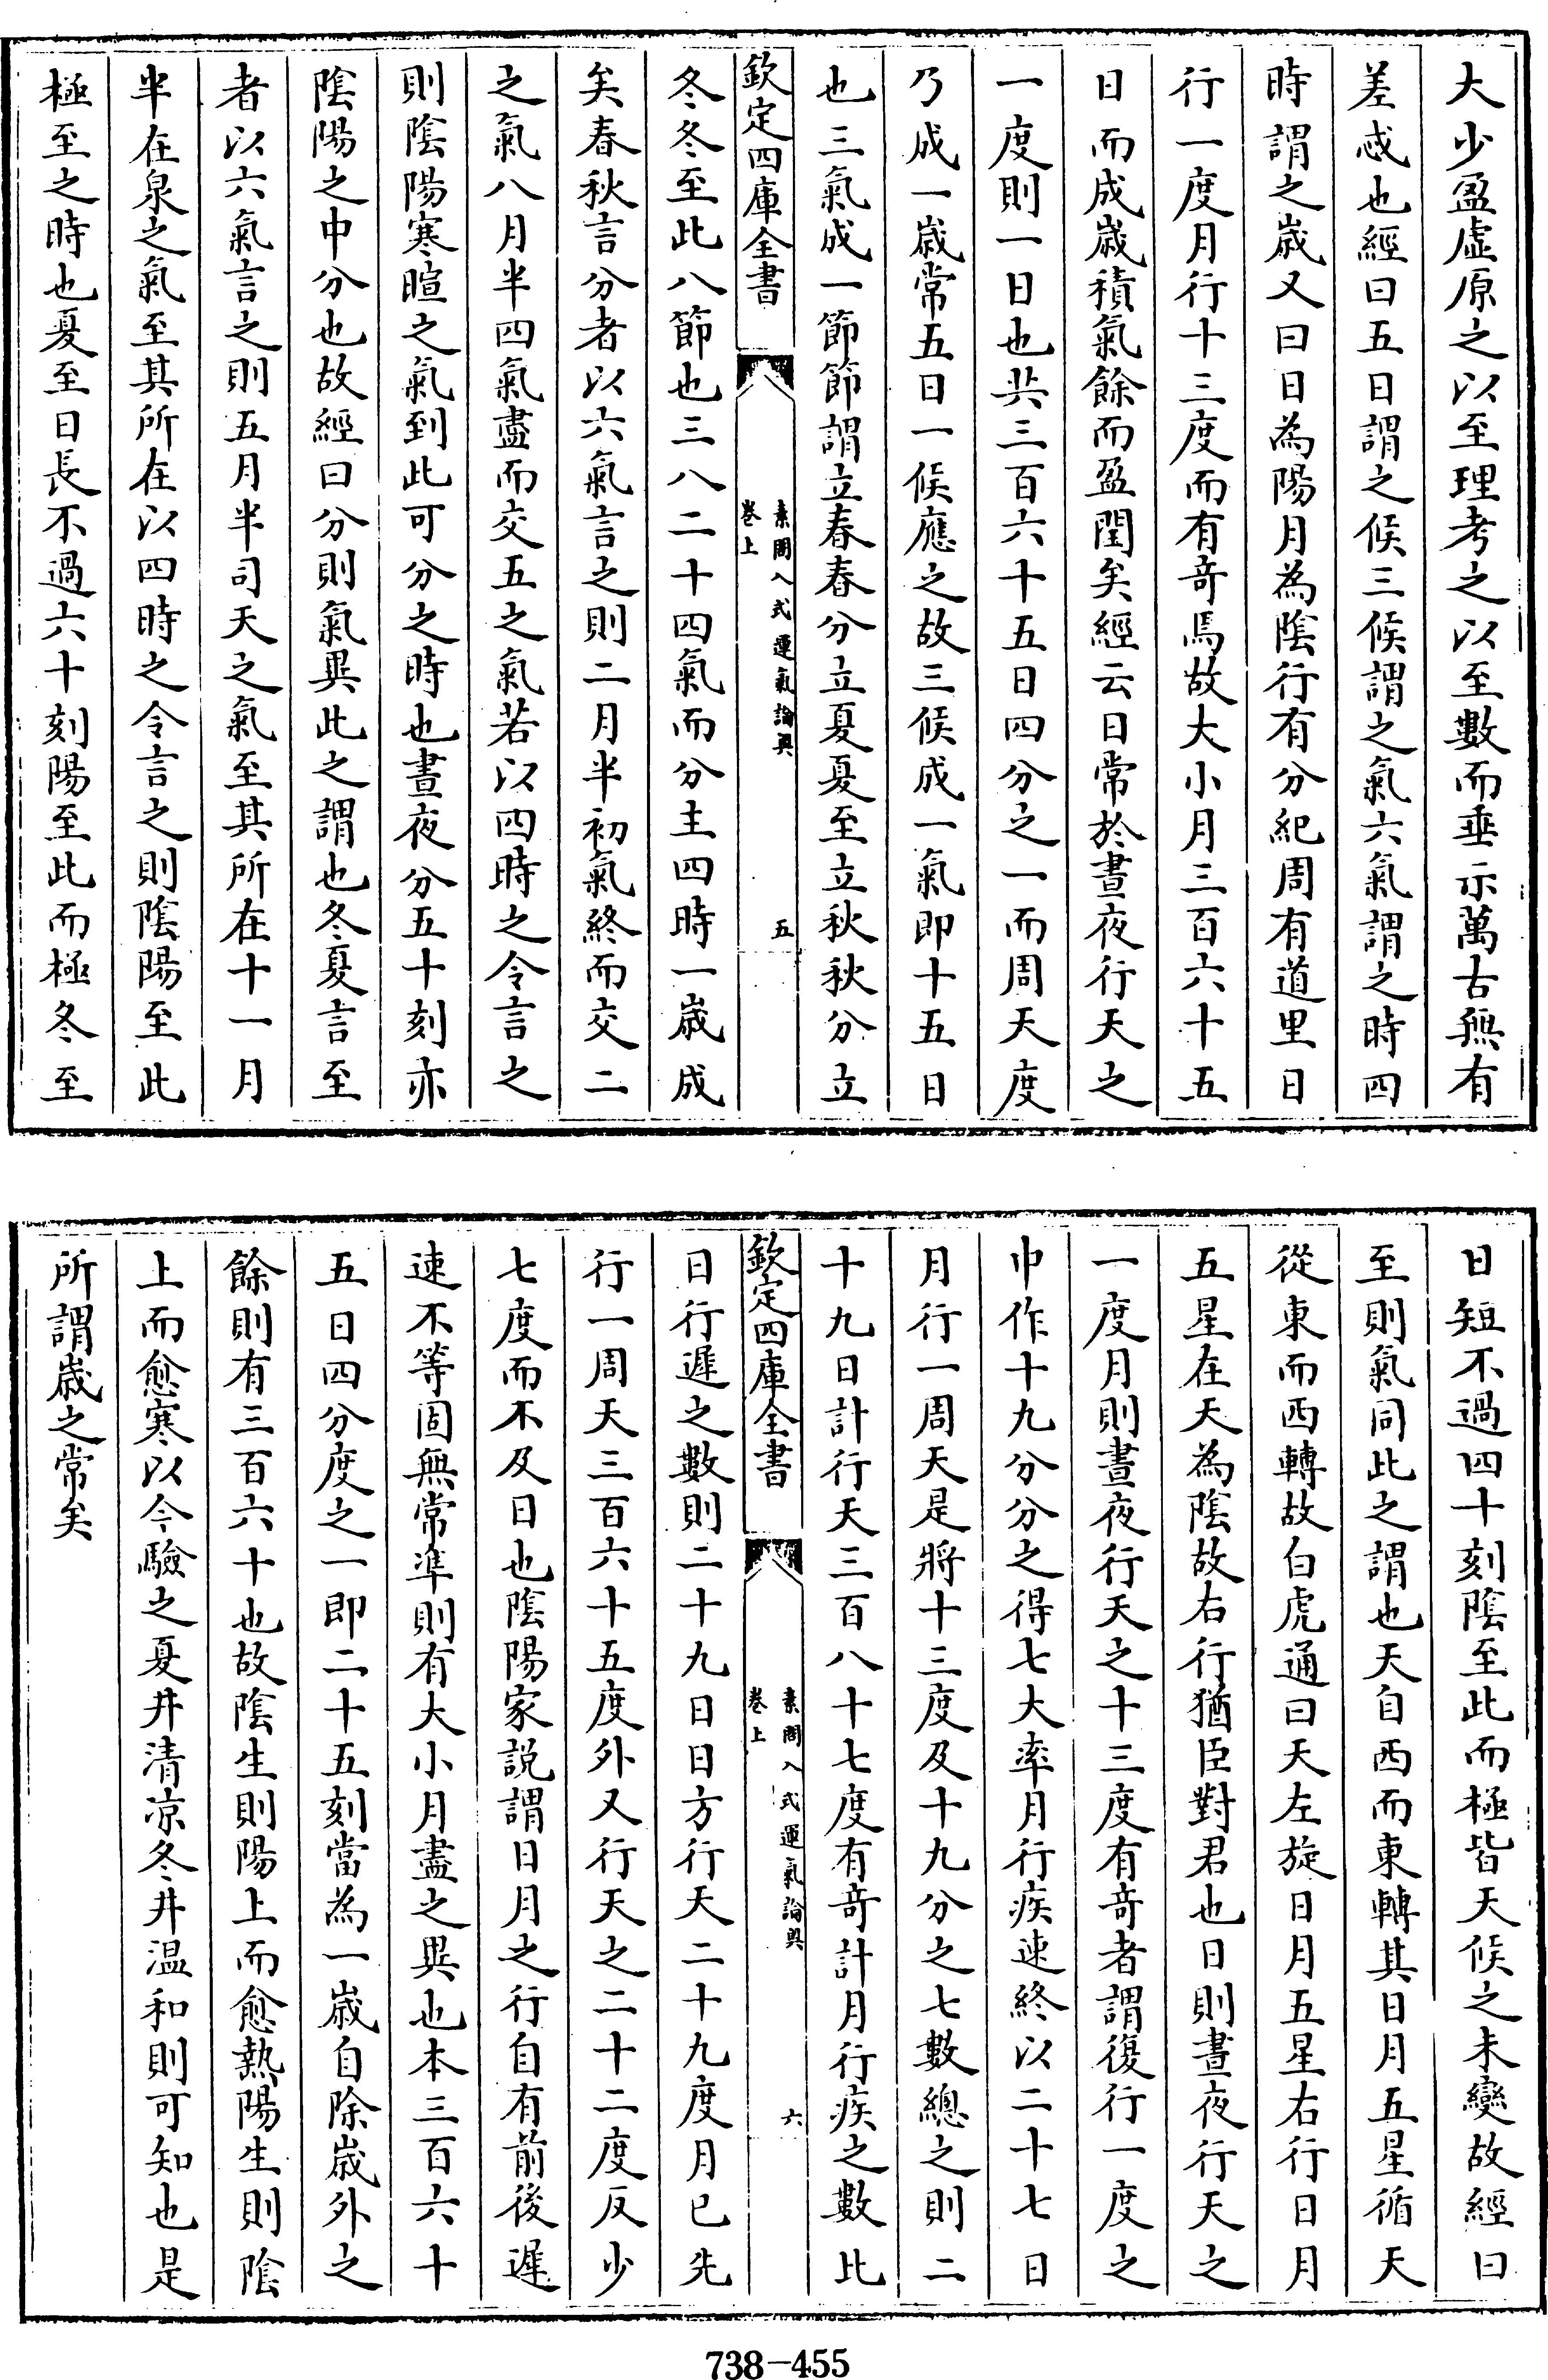 大少盈虚原之以至理考之以至數而垂示萬古無有
差忒也經曰五日謂之候三候謂之氣六氣謂之時四
時謂之歳又曰日為陽月為隂行有分紀周有道里日
行一度月行十三度而有奇焉故大小月三百六十五
日而成歳積氣餘而盈閏矣經云日常於晝夜行天之
一度則一日也共三百六十五日四分之一而周天度
乃成一歳常五日一候應之故三候成一氣即十五日
也三氣成一節節謂立春春分立夏夏至立秋秋分立
欽定四庫全書
素問入式運氣論奥
卷上
五
冬冬至此八節也三八二十四氣而分主四時一歳成
矣春秋言分者以六氣言之則二月半初氣終而交二
之氣八月半四氣盡而交五之氣若以四時之令言之
則隂陽寒暄之氣到此可分之時也晝夜分五十刻亦
隂陽之中分也故經曰分則氣異此之謂也冬夏言至
者以六氣言之則五月半司天之氣至其所在十一月
半在泉之氣至其所在以四時之令言之則隂陽至此
極至之時也夏至日長不過六十刻陽至此而極冬至
日短不過四十刻隂至此而極皆天候之未變故經曰
至則氣同此之謂也天自西而東轉其日月五星循天
從東而西轉故白虎通曰天左旋日月五星右行日月
五星在天為隂故右行猶臣對君也日則晝夜行天之
一度月則晝夜行天之十三度有奇者謂復行一度之
中作十九分分之得七大率月行疾速終以二十七日
月行一周天是將十三度及十九分之七數總之則二
十九日計行天三百八十七度有奇計月行疾之數比
欽定四庫全書
素問入式運氣論奥
卷上
六
日行遲之數則二十九日日方行天二十九度月已先
行一周天三百六十五度外又行天之二十二度反少
七度而不及日也隂陽家説謂日月之行自有前後遲
速不等固無常準則有大小月盡之異也本三百六十
五日四分度之一即二十五刻當為一歳自除歳外之
餘則有三百六十也故隂生則陽上而愈熱陽生則隂
上而愈寒以今驗之夏井清凉冬井温和則可知也是
所謂歳之常矣
738-455